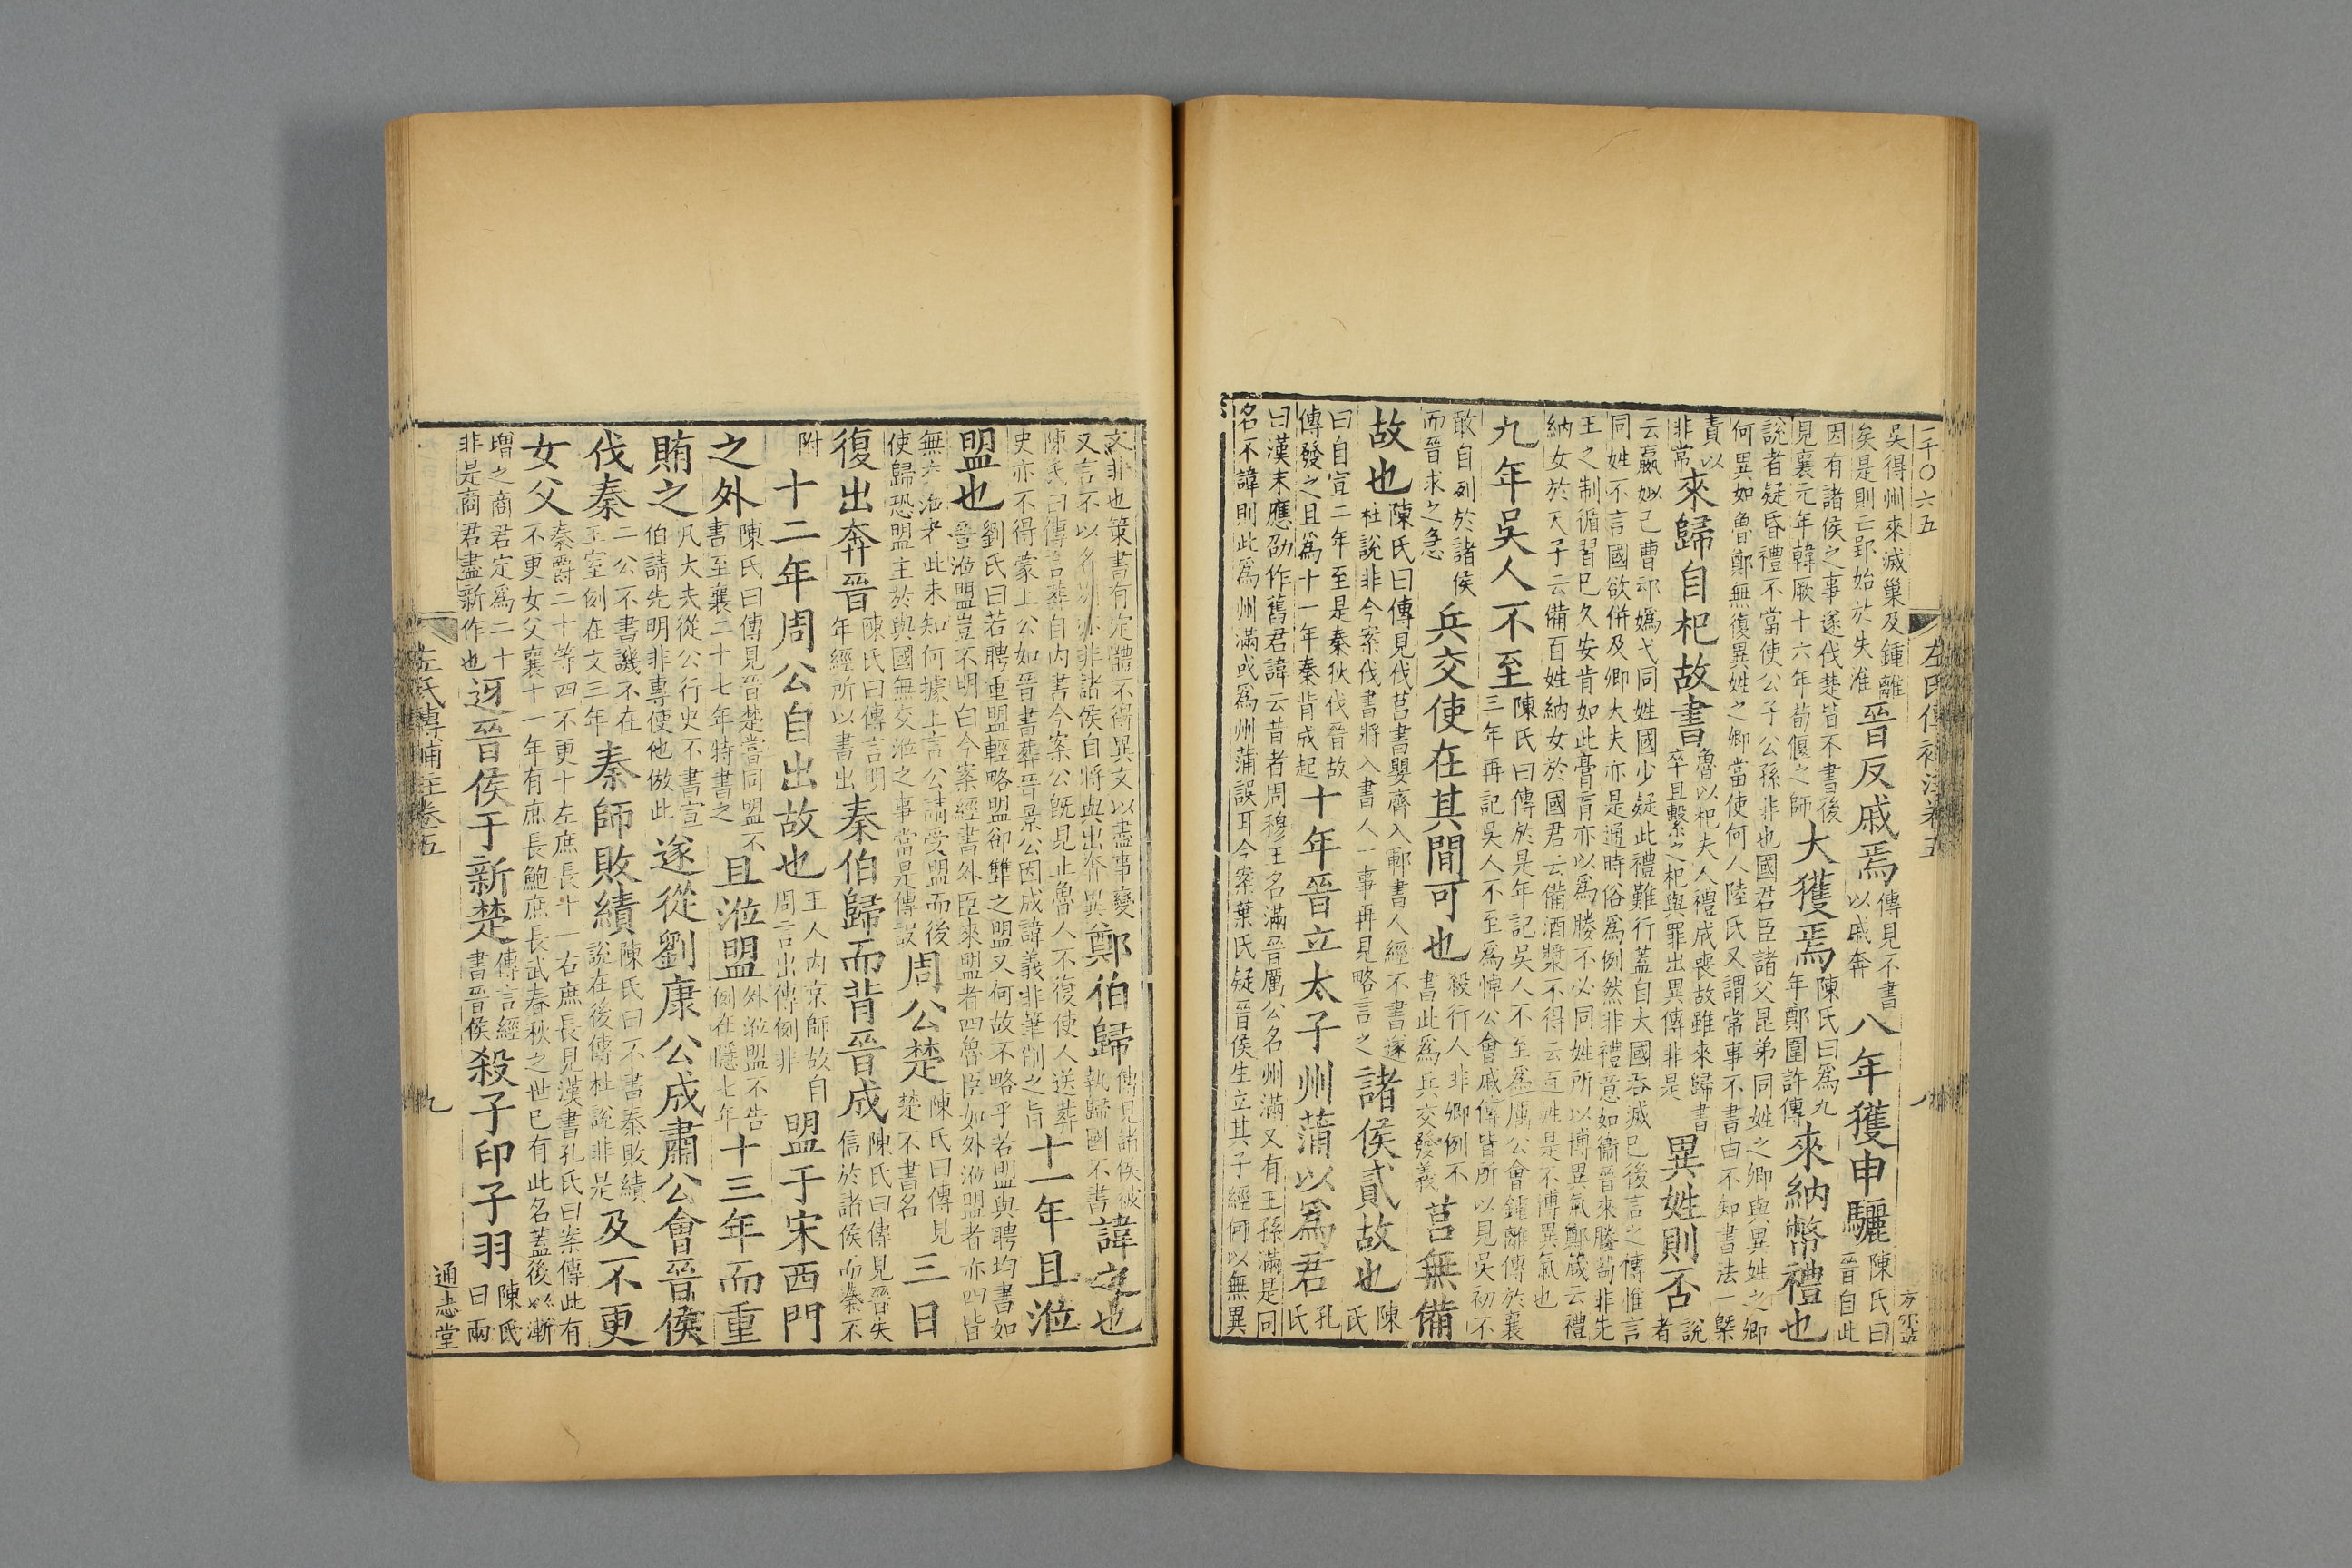 二千〇六五
左氏傳補注卷五
八
吳得州來滅巢及鍾離
矣是則亡郢始於失淮
晉反戚焉
傳見不書
以戚奔
八年獲申驪
陳氏曰
晉自此
因有諸侯之事遂伐楚皆不書後
見襄元年韓厥十六年荀偃之師
大獲焉
陳氏曰爲九
年鄭圍許傳
來納幣禮也
說者疑昏禮不當使公子公孫非也國君臣諸父昆弟同姓之卿與異姓之卿
何異如魯鄭無復異姓之卿當使何人陸氏又謂常事不書由不知書法一槩
責以
非常
來歸自杞故書
魯以杞夫人禮成喪故雖來歸書
卒且繫之杞與罪出異傳非是
異姓則否
說
者
云嬴姒己曹祁嬀弋同姓國少疑此禮難行蓋自大國吞滅已後言之傳惟言
同姓不言國欲併及卿大夫亦是通時俗爲例然非禮意如衞晉來媵荀非先
王之制循習已久安肯如此膏肓亦以爲媵不必同姓所以博異氣鄭箴云禮
納女於天子云備百姓納女於國君云備酒漿不得云百姓是不博異氣也
九年吳人不至
陳氏曰傳於是年記吳人不至爲厲公會鍾離傳於襄
三年再記吳人不至爲悼公會戚傳皆所以見吳初不
敢自列於諸侯
而晉求之急
兵交使在其間可也
殺行人非卿例不
書此爲兵交發義
莒無備
故也
陳氏曰傳見伐莒書嬰齊入鄆書人經不書遂
杜說非今案伐書將入書人一事再見略言之
諸侯貳故也
陳
氏
曰自宣二年至是秦狄伐晉故
傳發之且爲十一年秦背成起
十年晉立太子州蒲以爲君
孔
氏
曰漢末應劭作舊君諱云昔者周穆王名滿晉厲公名州滿又有王孫滿是同
名不諱則此爲州滿或爲州蒲誤耳今案葉氏疑晉侯生立其子經何以無異
文非也策書有定體不得異文以盡事變
又言不以名別亦非諸侯自將與出奔異
鄭伯歸
傳見諸侯被
執歸國不書
諱之也
陳氏曰傳言葬自內書今案公旣見止魯人不復使人送葬
史亦不得蒙上公如晉書葬晉景公因成諱義非筆削之旨
十一年且涖
盟也
劉氏曰若聘重盟輕略盟卻雙之盟又何故不略乎若盟與聘均書如
晉涖盟豈不明白今案經書外臣來盟者四魯臣如外涖盟者亦四皆
無方治者此未知何據上言公請受盟而後
使歸恐盟主於與國無交涖之事當是傳誤
周公楚
陳氏曰傳見
楚不書名
三日
復出奔晉
陳氏曰傳言明
年經所以書出
秦伯歸而背晉成
陳氏曰傳見晉失
信於諸侯而秦不
附
十二年周公自出故也
王人內京師故自
周言出傳例非
盟于宋西門
之外
陳氏曰傳見晉楚當同盟不
書至襄二十七年特書之
且涖盟
外涖盟不告
例在隱七年
十三年而重
賄之
凡大夫從公行史不書宣
伯請先明非專使他倣此
遂從劉康公成肅公會晉侯
伐秦
二公不書譏不在
王室例在文三年
秦師敗績
陳氏曰不書秦敗績
說在後傳杜說非是
及不更
女父
秦爵二十等四不更十左庶長十一右庶長見漢書孔氏曰案傳此有
不更女父襄十一年有庶長鮑庶長武春秋之世已有此名蓋後以漸
增之商君定爲二十
非是商君盡新作也
迓晉侯于新楚
傳言經
書晉侯
殺子印子羽
陳氏
曰兩
左氏傳補注卷五
九
通志堂